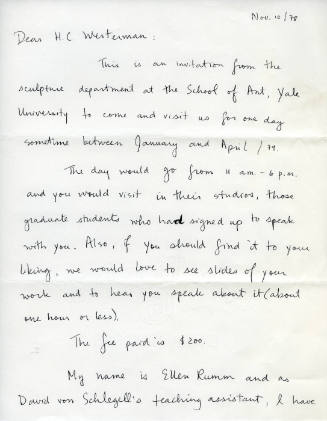 Nov. 10/78
Dear H.C Westerman:
This is an invitation from the
sculpture department at the School of Art, Yale
University to come and visit us for one day
sometime between January and April /79.
The day would go from 11 am.-6 p.m.
and you would visit in their studios, those
graduate students who had signed up to speak
with you. Also, if you should find it to your
liking, we would love to see slides of your
work and to hear you speak about it (about
one hour or less).
The fee paid is $200.
My name is Ellen Rumm and as
David von Schlegell's teaching assistant, I have